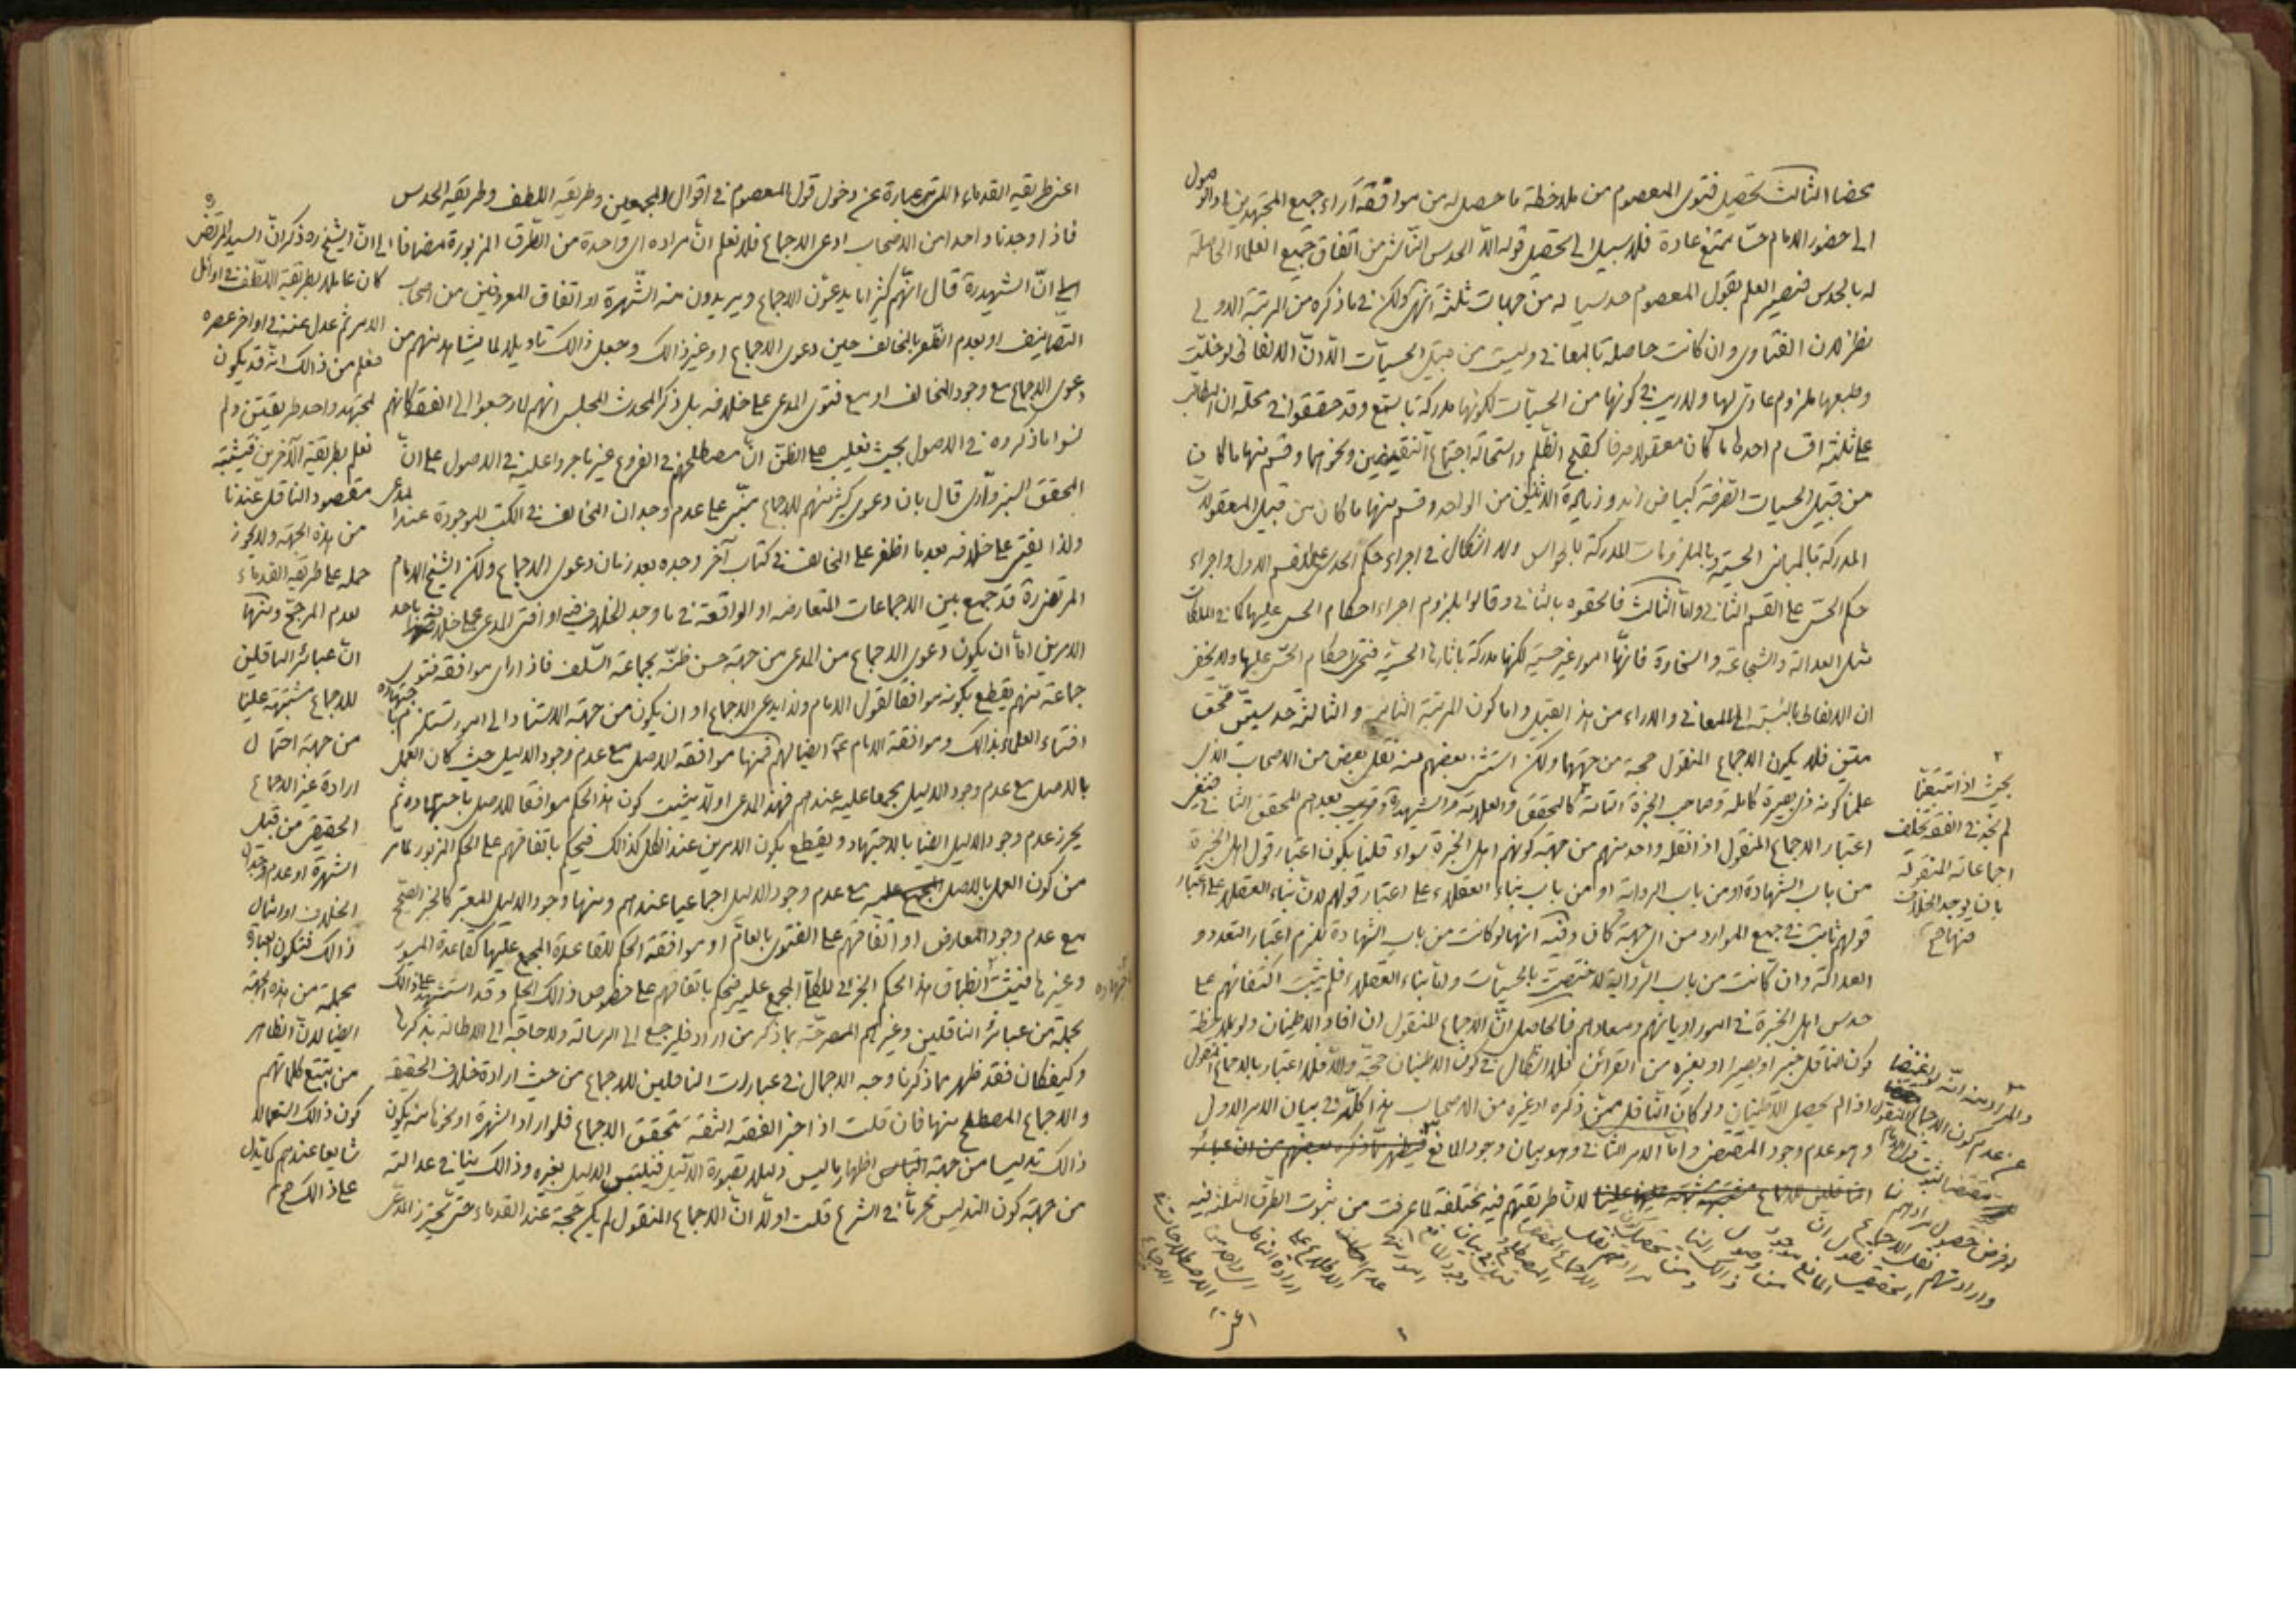 محضا الثالث تحصيل فتوى المعصوم من ملاحظة ما حصل له من موافقة آراء جميع المجتهدين والوصول
الى حضور الامام حسّا ممتنع عادة فلا سبيل الى تحصيل قوله الّا الحدس الناشى من اتفاق جميع العلماء الحاصلة
له بالحدس فيصير العلم بقول المعصوم حدسيا له من جهات ثلثة انتهى ولكن فى ما ذكره من المرتبة الاولى
نظر لان الفتاوى وان كانت حاصلة بالمعانى وليست من قبيل الحسيّات الّا انّ الالفاظ لو خلّيت
وطبعها ملزوم عادى لها ولا ريب فى كونها من الحسيّات لكونها مدركة بالسمع وقد حققوا فى محله ان المطالب
على ثلثة اقسام احدها ما كان معقولا صرفا كقبح الظلم واستحالة اجتماع النقيضين ونحوهما وقسم منها ما كان
من قبيل الحسيات الصرفة كبياض زيد وزيادة الاثنين من الواحد وقسم منها ما كان من قبيل المعقولات
المدركة بالمبانى الحسية وبالملزومات المدركة بالحواس ولا اشكال فى اجراء حكم الحدس على القسم الاول واجراء
حكم الحسّ على القسم الثانى وامّا الثالث فالحقوه بالثانى وقالوا بلزوم اجراء احكام الحس عليها كما فى الملكات
مثل العدالة والشجاعة والسخاوة فانّها امور غير حسية لكنها مدركة باثارها الحسية فتجرى احكام الحسّ عليها ولا يخفى
ان الالفاظ بالنسبة الى المعانى والاراء من هذا القبيل واما كون المرتبة الثانية والثالثة حدسيتين فمحقق
متين فلا يكون الاجماع المنقول حجة من جهتهما ولكن استثنى بعضهم منه نقل بعض من الاصحاب الذى
علمنا كونه ذى بصيرة كاملة وصاحب الخبرة التامة كالمحقق والعلامة والشهيد وبعدهم المحقق الثانى فيغير
اعتبار الاجماع المنقول اذا نقله واحد منهم من جهة كونهم اهل الخبرة سواء قلنا بكون اعتبار قول اهل الخبرة
من باب الشهادة او من باب الرواية او من باب بناء العقلاء على اعتبار قولهم لان بناء العقلاء على اعتبار
قولهم ثابت فى جميع الموارد من اى جهة كان وفيه انها لو كانت من باب الشهادة للزم اعتبار التعدد و
العدالة وان كانت من باب الرواية لاختصت بالحسيّات وامّا بناء العقلاء فلم يثبت اكتفائهم على
حدس اهل الخبرة فى امور اديانهم ومعادهم فالحاصل انّ الاجماع المنقول ان افاد الاطمينان ولو بملاحظة
كون الناقل خبيرا وبصيرا او بغيره من القرائن فلا اشكال فى كون الاطمينان حجّة والّا فلا اعتبار بالاجماع المنقول
اذا لم يحصل الاطمينان ولو كان الناقل ممّن ذكره او غيره من الاصحاب هذا كلّه فى بيان الامر الاول
وهو عدم وجود المقتضى وامّا الامر الثانى وهو بيان وجود المانع فيظهر ممّا ذكره بعضهم من ان عبائر
الناقلين للاجماع علينا لان طريقتهم فيه مختلفة لما عرفت من ثبوت الطرق الثلثة فيه
بحيث اذا تتبعنا
لم نجد فى الفقه تخلف
اجماعاته المنقولة
بان يوجد الخلاف
فيها صح
والمراد منه انّه
عن عدم كون الاجماع المنقول
اعنى
اعنى طريقة القدماء التى عبارة عن دخول قول المعصوم فى اقوال المجمعين وطريقة اللطف وطريقة الحدس
فاذا وجدنا واحدا من الاصحاب ادعى الاجماع فلا نعلم انّ مراده اى واحدة من الطرق المزبورة مضافا الى انّ الشيخ ره ذكر انّ السيد المرتضى
الى انّ الشهيد ره قال انّهم كثيرا ما يدعون الاجماع ويريدون منه الشهرة او اتفاق المعروفين من اصحاب
التصانيف او بعدم الظفر بالمخالف حين دعوى الاجماع او غير ذالك وجعل ذالك تاويلا لما يشاهد منهم من
دعوى الاجماع مع وجود المخالف او مع فتوى المدعى على خلافه بل ذكر المحدث المجلسى انهم لما رجعوا الى الفقه كانهم
نسوا ما ذكروه فى الاصول بحيث يغلب على الظن انّ مصطلحهم فى الفروع غير ما جروا عليه فى الاصول على انّ
المحقق السبزوارى قال بان دعوى كثير منهم للاجماع مبنى على عدم وجدان المخالف فى الكتب الموجودة عند المدعى
ولذا يفتى على خلافه بعد ما اظفر على المخالف فى كتاب آخر وجده بعد زمان دعوى الاجماع ولكن الشيخ الامام
المرتضى ره قد جمع بين الاجماعات المتعارضة او الواقعة فى ما وجد الخلاف فيه او افتى المدعى على خلاف فتواه باحد
الامرين امّا ان يكون دعوى الاجماع من المدعى من جهة حسن ظنّه بجماعة السّلف فاذا راى موافقة فتوى
جماعة منهم يقطع بكونه موافقا لقول الامام ولذا يدعى الاجماع او ان يكون من جهة الاستناد الى امور تستلزم باجتهاده
افتاء العلماء بذالك وموافقة الامام ع ايضا لهم فمنها موافقة الاصل مع عدم وجود الدليل حيث كان العمل
بالاصل مع عدم وجود الدليل مجمعا عليه عندهم فهذا المدعى اولا يثبت كون هذا الحكم موافقا للاصل باجتهاده ثم
يحرز عدم وجود الدليل ايضا بالاجتهاد ويقطع بكون الامرين عند الكل كذالك فيحكم باتفاقهم على الحكم المزبور لما مر
من كون العمل بالاصل مع عدم وجود الدليل اجماعيا عندهم ومنها وجود الدليل المعتبر كالخبر الصحيح
مع عدم وجود المعارض او اتفاقهم على الفتوى بالعام او موافقة الحكم للقاعدة المجمع عليها كقاعدة الميسور
وغيرها فيثبت انطباق هذا الحكم الجزئى للكلّى المجمع عليه فيحكم باتفاقهم على خصوص ذالك الحكم وقد استشهد على ذالك
بجملة من عبائر الناقلين وغيرهم المصرحة بما ذكر من اراد فليرجع الى الرسالة ولا حاجة الى الاطالة بذكرها
وكيفكان فقد ظهر مما ذكرنا وجه الاجمال فى عبارات الناقلين للاجماع من حيث ارادة خلاف الحقيقة
والاجماع المصطلح منها فان قلت اذا اخبر الفقيه الثقة بتحقق الاجماع فلو اراد الشهرة او نحوها منه يكون
ذالك تدليسا من جهة اظهار ما ليس دليلا بصورة الدّليل فيلتبس الدليل بغيره وذالك ينافى عدالته
من جهة كون التدليس محرما فى الشرع قلت اولا انّ الاجماع المنقول لم يكن حجة عند القدماء حتى
كان عاملا بطريقة اللطف فى اوائل
الامر ثم عدل عنه فى اواخر عصره
فعلم من ذالك انّه قد يكون
لمجتهد واحد طريقتين ولم
نعلم بطريقة الآخرين فيشتبه
مقصود الناقل عندنا
من هذه الجهة ولا يجوز
حمله على طريقة القدماء
لعدم المرجح ومنها
انّ عبائر الناقلين
للاجماع مشتبهة علينا
من جهة احتمال
ارادة غير الاجماع
الحقيقى من قبيل
الشهرة او عدم وجدان
الخلاف او امثال
ذالك فتكون العبارة
مجملة من هذه الجهة
ايضا لانّ الظاهر
من تتبع كلماتهم
كون ذالك استعمالا
شايعا عندهم كما يدل
على ذالك صح